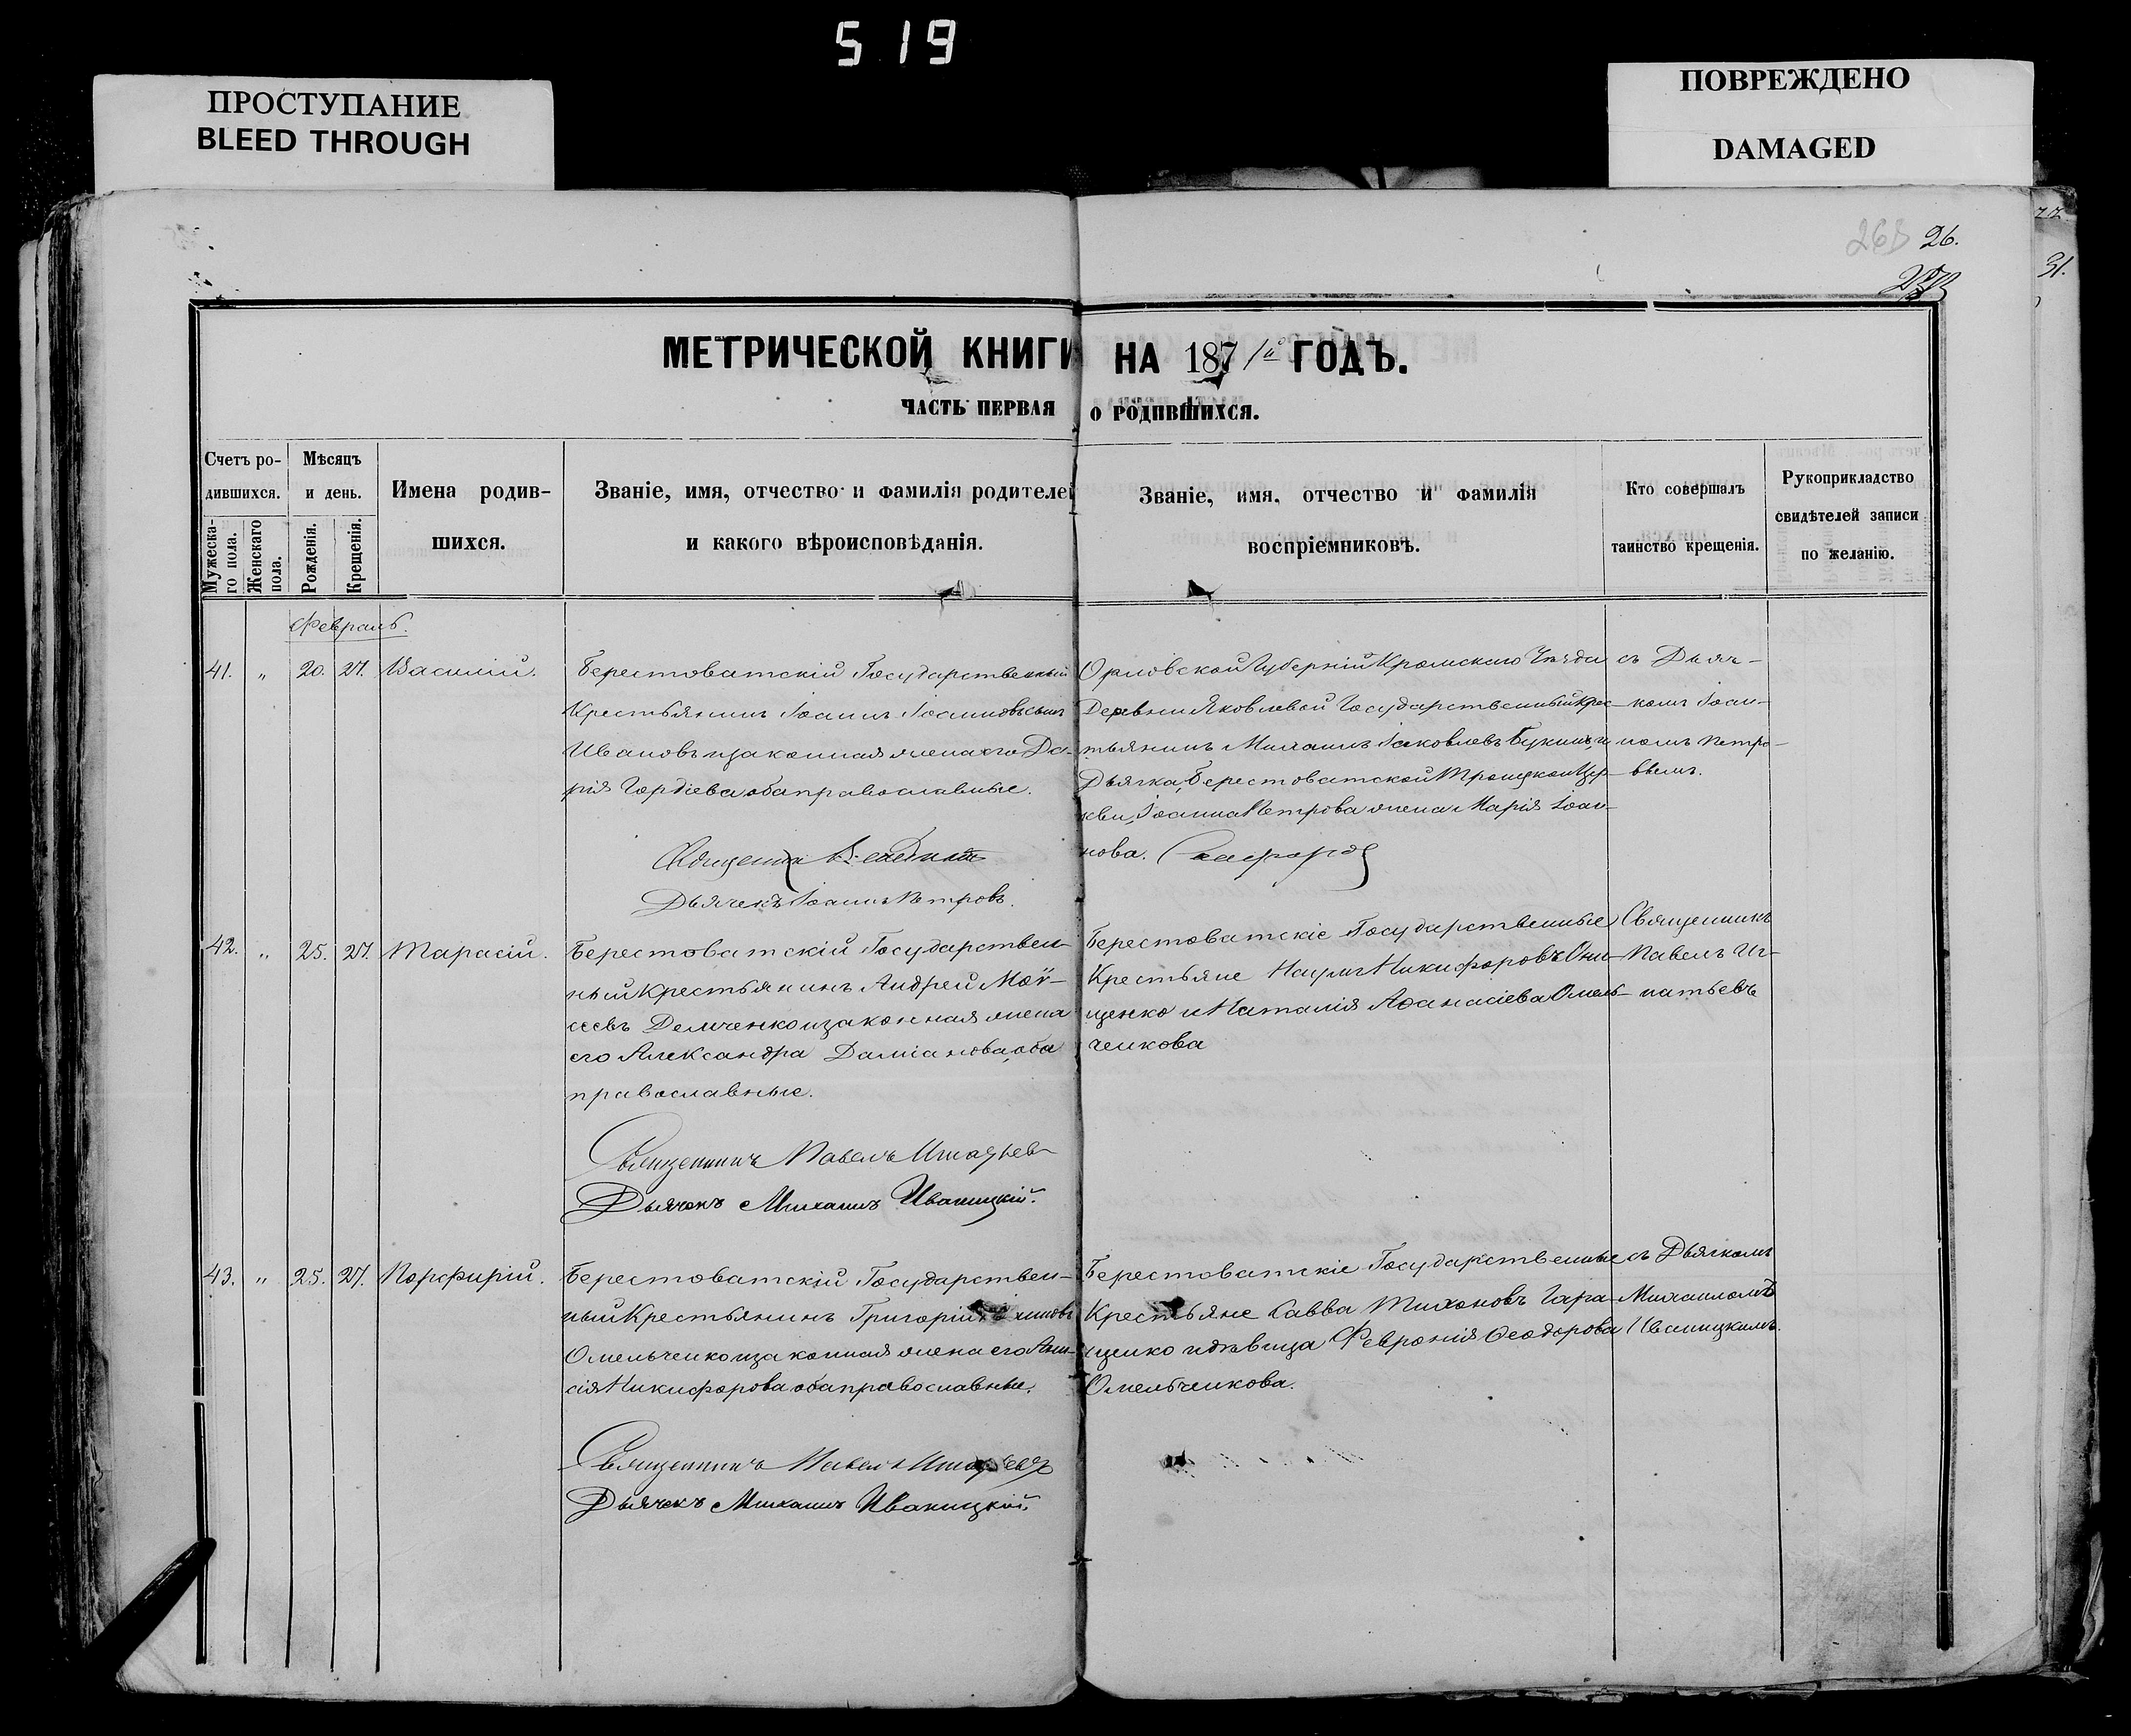 519
ПРОСТУПАНИЕ
BLEED THROUGH
ПОВРЕЖДЕНО
DAMAGED
26.
31.
МЕТРИЧЕСКОЙ КНИГИ НА 1871й ГОДЪ.
ЧАСТЬ ПЕРВАЯ О РОДИВШИХСЯ.
Счетъ ро-
дившихся.
Мужеска-
го пола.
Женскаго
пола.
Мѣсяцъ
и день.
Рожденія.
Крещенія.
Имена родив-
шихся.
Званіе, имя, отчество и фамилія родителей
и какого вѣроисповѣданія.
Званіе, имя, отчество и фамилія
воспріемниковъ.
Кто совершалъ
таинство крещенія.
Рукоприкладство
свидѣтелей записи
по желанію.
Февраль.
41. " 20. 27. Василій.
Берестоватскій Государственный
Крестьянинъ Іоаннъ Іоанновъ сынъ
Ивановъ и законная жена его Да-
рія Гордіева оба православные.
Дьячекъ Іоаннъ Петровъ.
Орловской Губерніи Кромскаго Уѣзда
Деревни Яковлевой Государственный Крес-
тьянинъ Михаилъ Іаковлевъ Букинъ, и
Дьячка, Берестоватской Троицкой Цер-
кви, Іоанна Петрова жена Марія Іоан-
нова.
съ Дьяч-
комъ Іоан-
номъ Петро-
вымъ.
42. " 25. 27. Тарасій.
Берестоватскій Государствен-
ный Крестьянинъ Андрей Моѵ-
сеевъ Демченко и законная жена
его Александра Даміанова, оба
православные.
Священникъ Павелъ Игнатьев
Дьячекъ Михаилъ Иваницкій.
Берестоватскіе Государственные
Крестьяне Наумъ Никифоровъ Они-
щенко и Наталія Аѳанасіева Омель-
ченкова
Священникъ
Павелъ Иг-
натьевъ
43. " 25. 27. Порфирій.
Берестоватскій Государствен-
ный Крестьянинъ Григорій
Омельченко и законная жена его Ани-
сія Никифорова оба православные.
Священникъ Павелъ Игнатьевъ
Дьячекъ Михаилъ Иваницкій.
Берестоватскіе Государственные
Крестьяне Савва Тихоновъ Гара-
щенко и дѣвица Февронія Ѳеодорова
Омельченкова.
съ Дьячкомъ
Михаиломъ
Иваницкимъ.